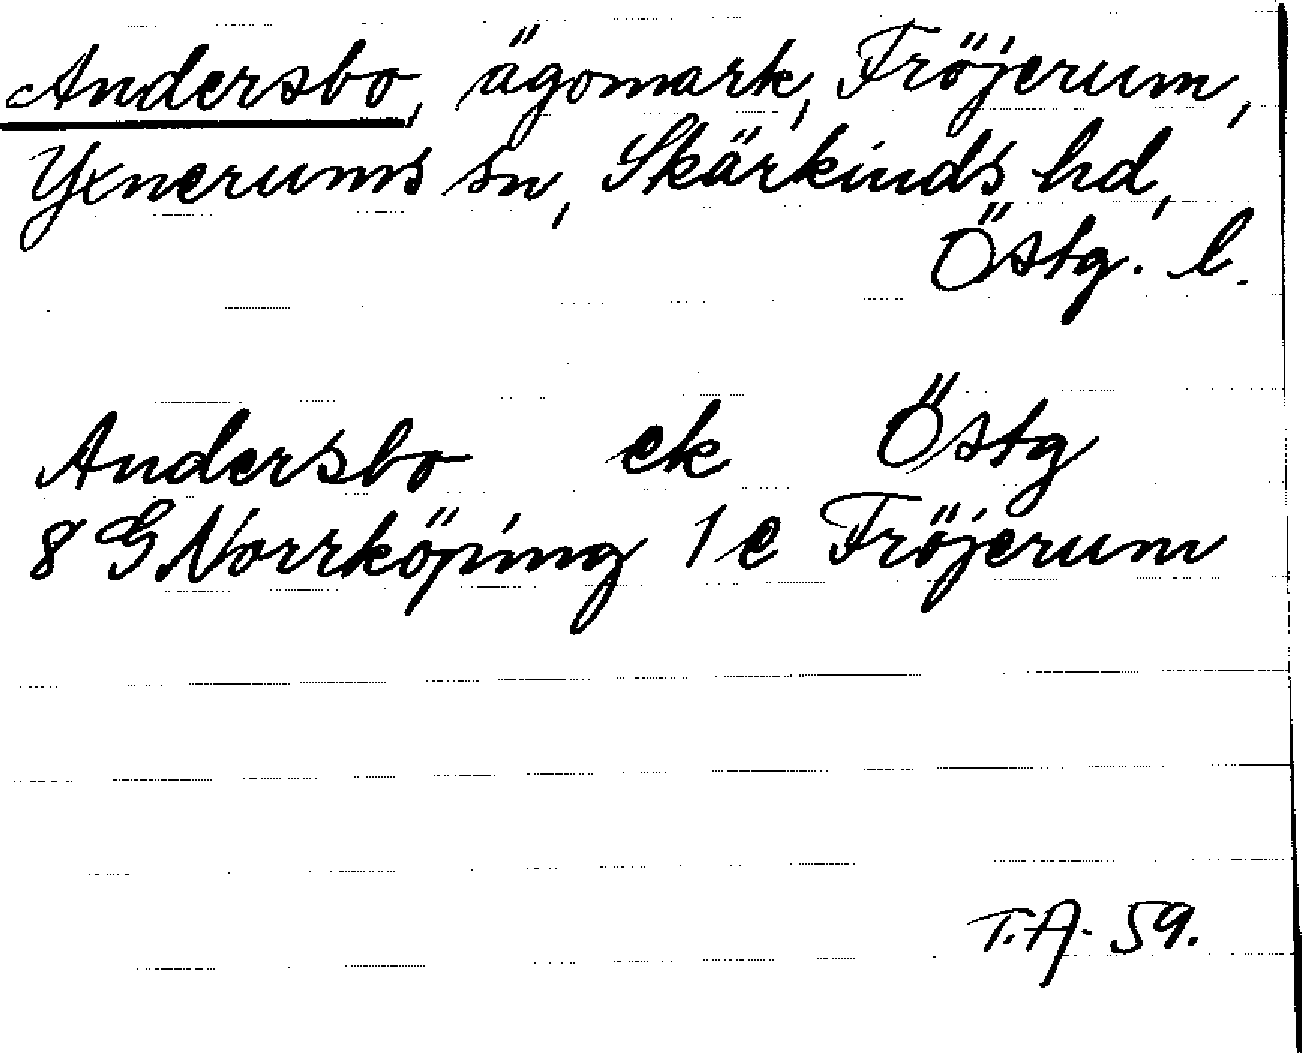 Andersbo, ägomark, Fröjerum,
Yxnerums sn, Skärkinds hd,
Östg. l.
Andersbo ek Östg
8 G Norrköping 1 e Fröjerum
T.A. 59.